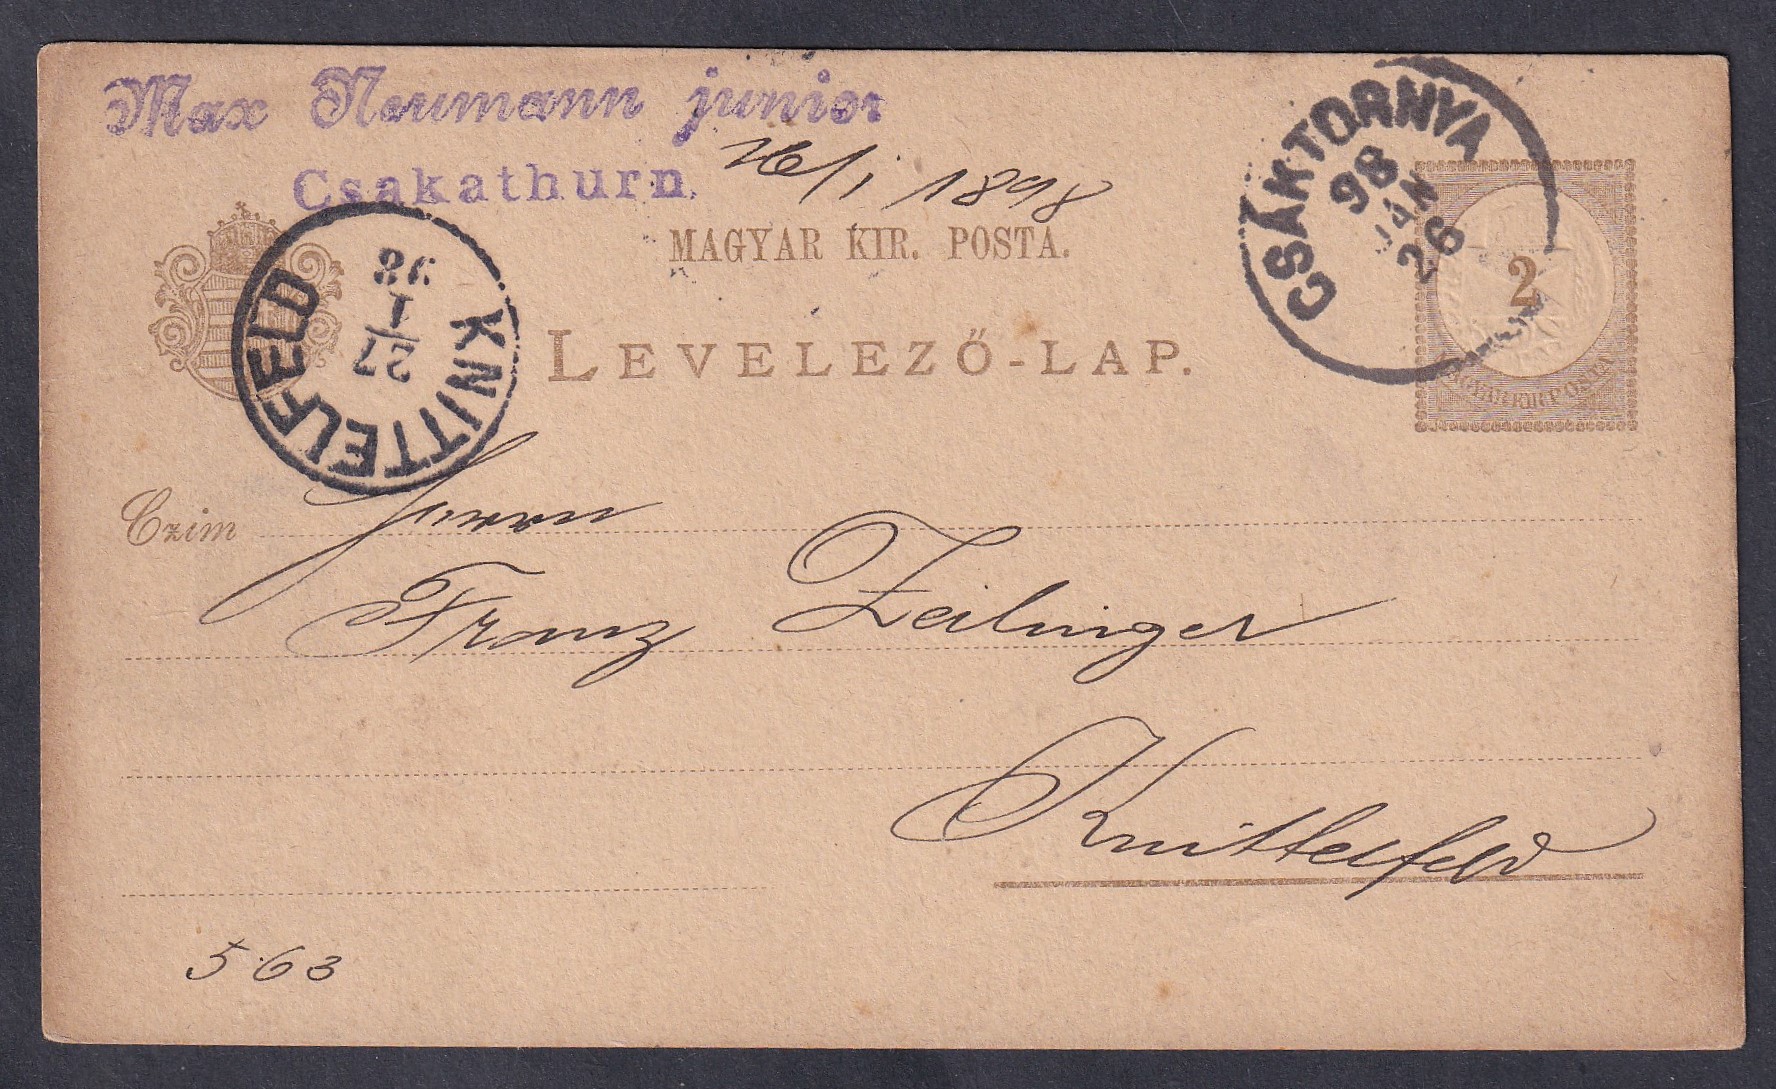 Max Neumann junior
Csakathurn
26/1 1898
MAGYAR KIR. POSTA.
LEVELEZŐ-LAP.
CSÁKTORNYA
98
JAN
26
2
MAGYAR KIR. POSTA
KNITTELFELD
27
1
98
Czim
Herrn
Franz Zeilinger
Knittelfeld
563